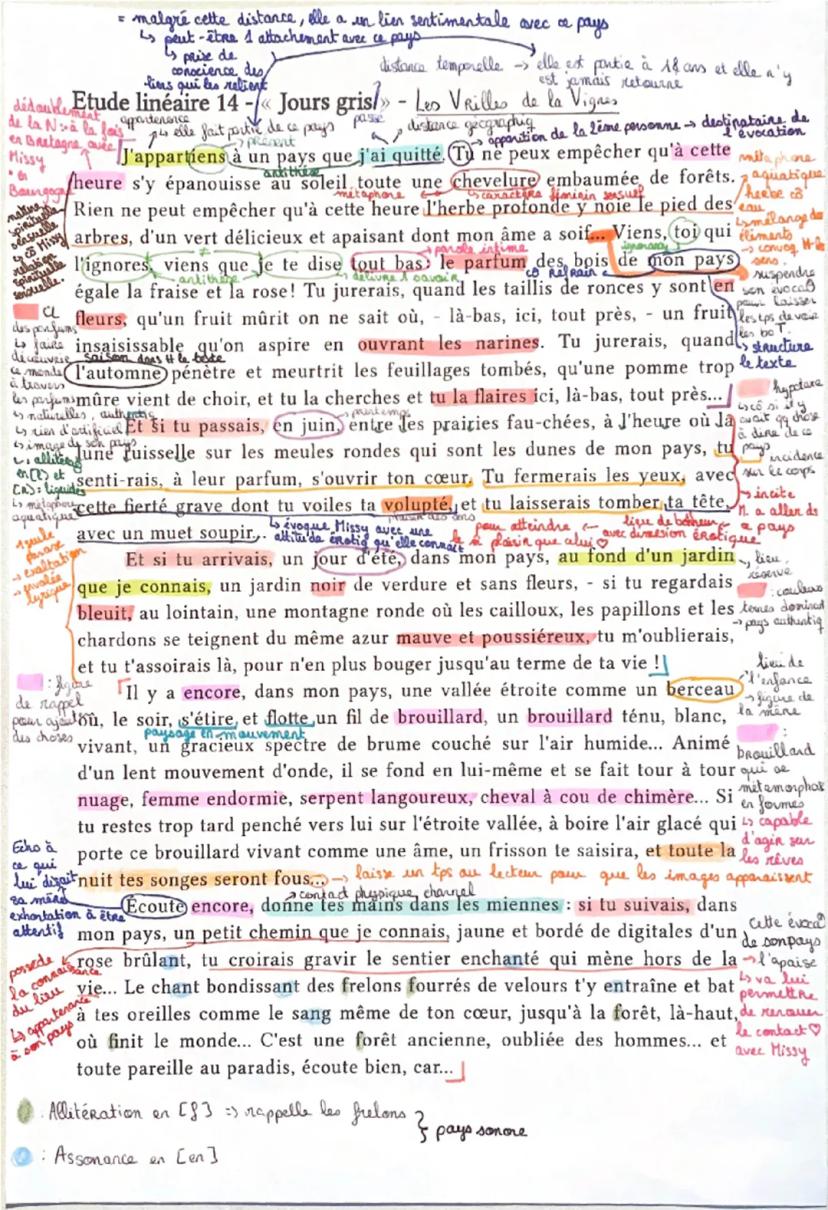 = malgré cette distance, elle a un lien sentimentale avec ce pays
↳ peut-être 1 attachement avec ce pays
↳ prise de conscience des liens qui les relient
distance temporelle → elle est partie à 18 ans et elle n'y est jamais retourne
Etude linéaire 14 - « Jours gris » - Les Vrilles de la Vignes
appartenence
↳ elle fait partie de ce pays
présent
passé
distance géographiq
apparition de la 2ème personne → destinataire de l'évocation
J'appartiens à un pays que j'ai quitté. Tu ne peux empêcher qu'à cette
antithèse
heure s'y épanouisse au soleil toute une chevelure embaumée de forêts.
métaphore ↔ caractère féminin sensuel
Rien ne peut empêcher qu'à cette heure l'herbe profonde y noie le pied des
arbres, d'un vert délicieux et apaisant dont mon âme a soif... Viens, toi qui
parole intime
ignorant
l'ignores, viens que je te dise tout bas: le parfum des bois de mon pays
antithèse
délivre 1 savoir
cô refrain
égale la fraise et la rose! Tu jurerais, quand les taillis de ronces y sont en
fleurs, qu'un fruit mûrit on ne sait où, - là-bas, ici, tout près, - un fruit
insaisissable qu'on aspire en ouvrant les narines. Tu jurerais, quand
saison dans H le texte
l'automne pénètre et meurtrit les feuillages tombés, qu'une pomme trop
mûre vient de choir, et tu la cherches et tu la flaires ici, là-bas, tout près...
printemps
Et si tu passais, en juin, entre les prairies fau-chées, à l'heure où la
lune ruisselle sur les meules rondes qui sont les dunes de mon pays, tu
senti-rais, à leur parfum, s'ouvrir ton cœur. Tu fermerais les yeux, avec
cette fierté grave dont tu voiles ta volupté, et tu laisserais tomber ta tête,
plaisir des sens
avec un muet soupir...
↳ évoque Missy avec une attitude érotiq qu'elle connaît
pour atteindre le m̂ plaisir que celui
lieu de bonheur avec dimension érotique
Et si tu arrivais, un jour d'été, dans mon pays, au fond d'un jardin
que je connais, un jardin noir de verdure et sans fleurs, - si tu regardais
bleuir, au lointain, une montagne ronde où les cailloux, les papillons et les
chardons se teignent du même azur mauve et poussiéreux, tu m'oublierais,
et tu t'assoirais là, pour n'en plus bouger jusqu'au terme de ta vie !
Il y a encore, dans mon pays, une vallée étroite comme un berceau
où, le soir, s'étire et flotte un fil de brouillard, un brouillard ténu, blanc,
paysage en mouvement
vivant, un gracieux spectre de brume couché sur l'air humide... Animé
d'un lent mouvement d'onde, il se fond en lui-même et se fait tour à tour
nuage, femme endormie, serpent langoureux, cheval à cou de chimère... Si
tu restes trop tard penché vers lui sur l'étroite vallée, à boire l'air glacé qui
porte ce brouillard vivant comme une âme, un frisson te saisira, et toute la
nuit tes songes seront fous...
→ laisse un tps au lecteur pour que les images apparaissent
contact physique, charnel
Écoute encore, donne tes mains dans les miennes : si tu suivais, dans
mon pays, un petit chemin que je connais, jaune et bordé de digitales d'un
rose brûlant, tu croirais gravir le sentier enchanté qui mène hors de la
vie... Le chant bondissant des frelons fourrés de velours t'y entraîne et bat
à tes oreilles comme le sang même de ton cœur, jusqu'à la forêt, là-haut,
où finit le monde... C'est une forêt ancienne, oubliée des hommes... et
toute pareille au paradis, écoute bien, car...
dédoublement de la N: à la fois en Bretagne avec Missy
en Bourgogne
CL des parfums
↳ faire découvrir ce monde à travers les parfums
↳ naturelles, authentiq
↳ rien d'artificiel
↳ image de son pays
1 seule phrase
→ exaltation
→ envolée lyrique
: figure de rappel pour ajout des choses
Echo à ce qui lui disait sa mère
exhortation à être attentif
possède la connaissance du lieu
↳ appartenance à son pays
métaphore aquatique
herbe cô eau
→ mélange des éléments
suspendre son évocaº pour laisser les tps de voir
↳ structure le texte
incidence sur le corps
→ incite
lieu réservé
: couleurs ternes dominent
→ pays authentiq
lieu de l'enfance
→ figure de la mère
: brouillard qui se métamorphose en formes
↳ capable d'agir sur les rêves
Cette évocaº de son pays
→ l'apaise
↳ va lui permettre de renouer le contact ♡ avec Missy
: Allitération en [f] => rappelle les frelons
: Assonance en [en]
} pays sonore